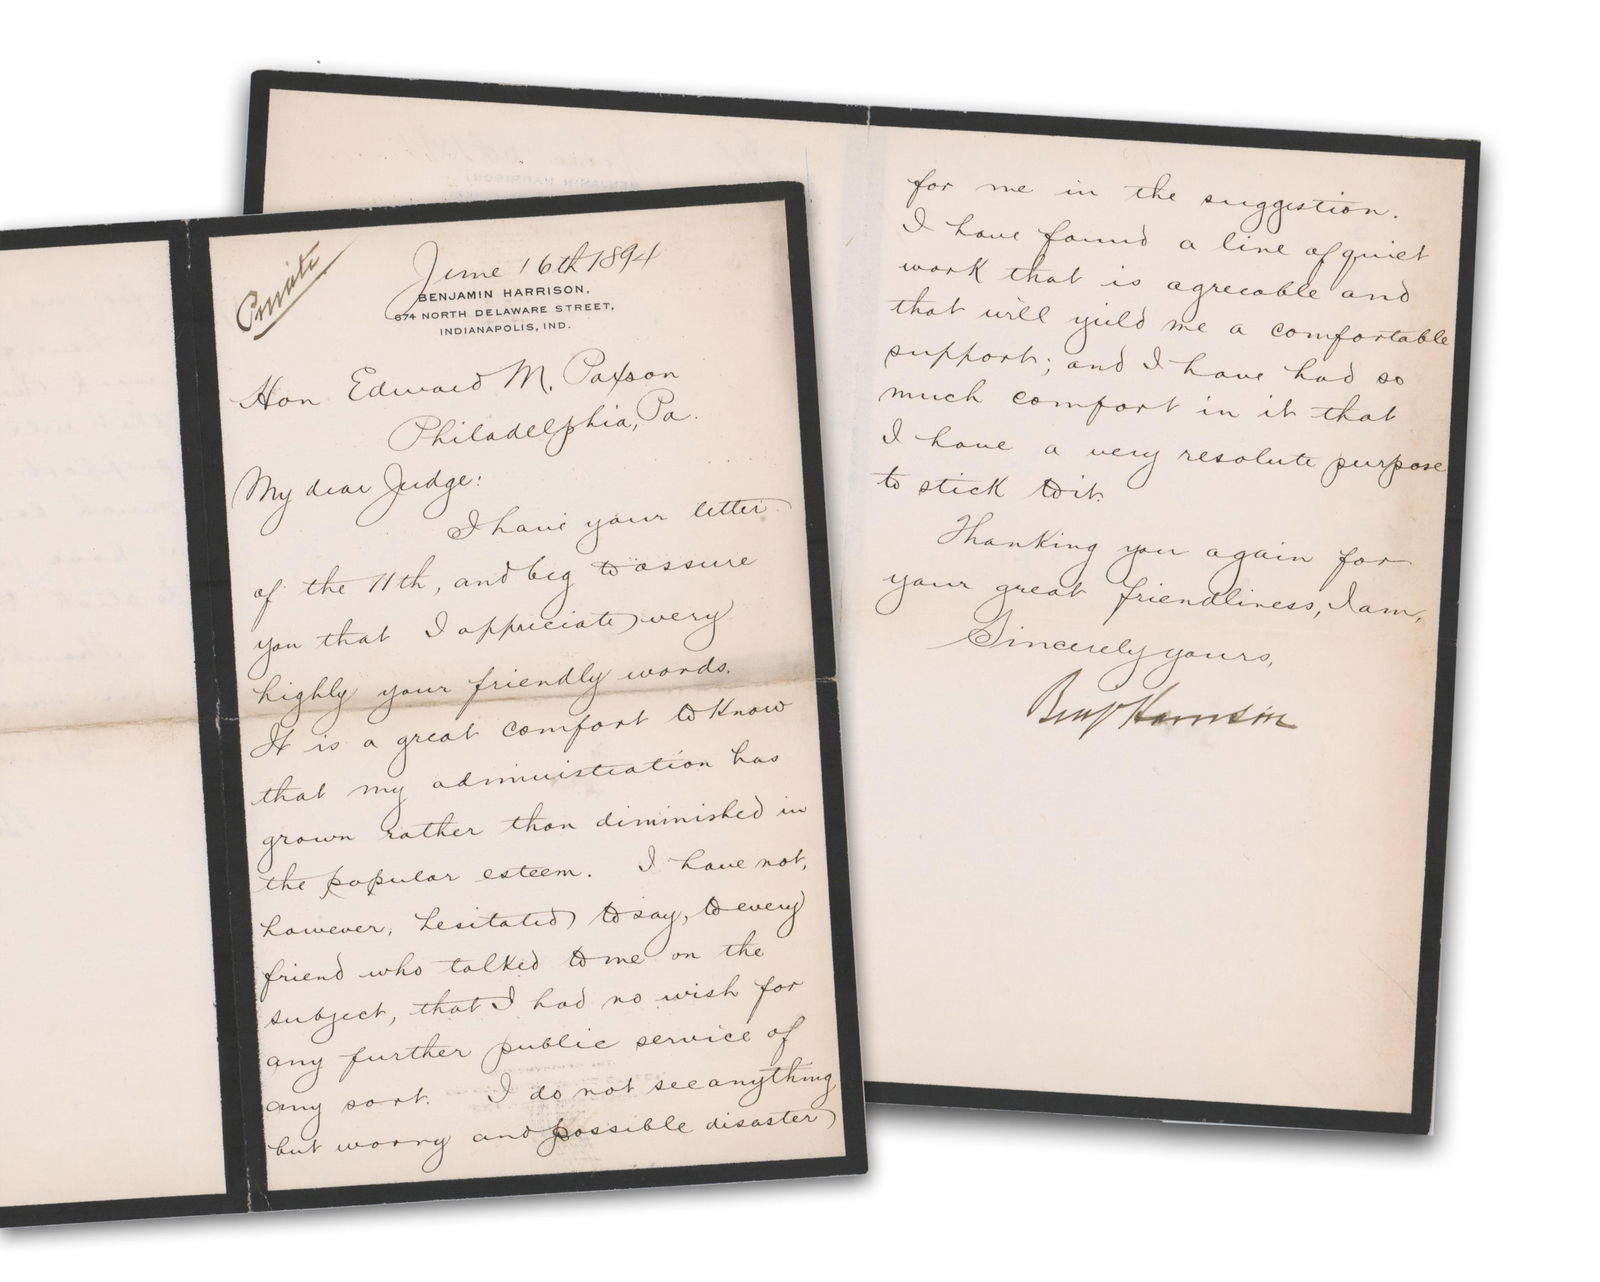 Private
June 16th 1894
BENJAMIN HARRISON,
674 NORTH DELAWARE STREET,
INDIANAPOLIS, IND.
Hon Edward M. Paxson
Philadelphia, Pa.
My dear Judge:
I have your letter
of the 11th, and beg to assure
you that I appreciate very
highly your friendly words.
It is a great comfort to know
that my administration has
grown rather than diminished in
the popular esteem. I have not,
however, hesitated to say, to every
friend who talked to me on the
subject, that I had no wish for
any further public service of
any sort. I do not see anything
but worry and possible disaster
for me in the suggestion.
I have found a line of quiet
work that is agreeable and
that will yield me a comfortable
support; and I have had so
much comfort in it that
I have a very resolute purpose
to stick to it.
Thanking you again for
your great friendliness, I am,
Sincerely yours,
Benj Harrison